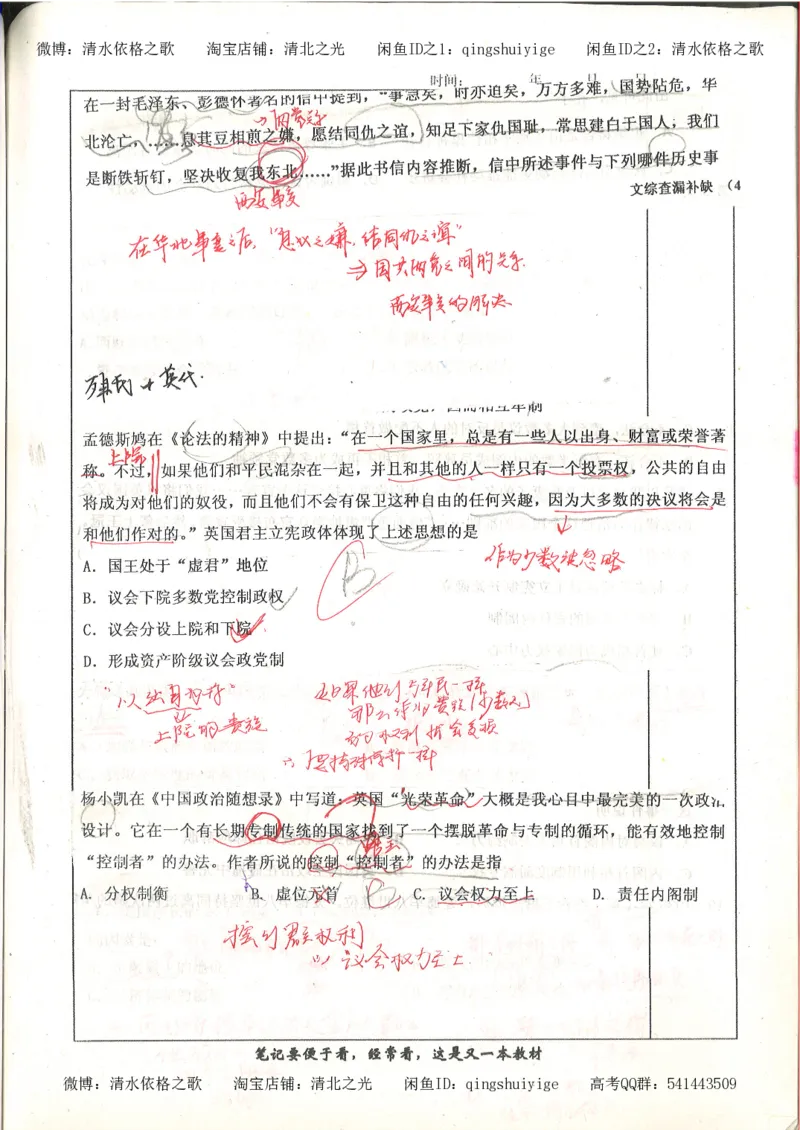 微博：清水依格之歌 淘宝店铺：清北之光 闲鱼ID之1：qingshuiyige 闲鱼ID之2：清水依格之歌
时间： 年 月 日
在一封毛泽东、彭德怀署名的信中提到，“事急矣，时亦迫矣，万方多难，国势阽危，华
两党派
北沦亡，……息萁豆相煎之嫌，愿结同仇之谊，知足下家仇国耻，常思建白于国人；我们
是断铁斩钉，坚决收复我东北……”据此书信内容推断，信中所述事件与下列哪件历史事
文综查漏补缺 （4
西安事变
在华北事变之后，“息战之嫌，结同仇之谊”
⇒国共两党之间的关系
西安事变的解决
孟德斯鸠在《论法的精神》中提出：“在一个国家里，总是有一些人以出身、财富或荣誉著
上院
称。不过，如果他们和平民混杂在一起，并且和其他的人一样只有一个投票权，公共的自由
将成为对他们的奴役，而且他们不会有保卫这种自由的任何兴趣，因为大多数的决议将会是
和他们作对的。”英国君主立宪政体体现了上述思想的是
作为少数被忽略
A．国王处于“虚君”地位
B．议会下院多数党控制政权
B
C．议会分设上院和下院
D．形成资产阶级议会政党制
“以出身为荐”
如果他们与平民一样
那么作为贵族(少数人)
上院的贵族
的权利
∴要特殊
杨小凯在《中国政治随想录》中写道：英国“光荣革命”大概是我心目中最完美的一次政治
设计。它在一个有长期专制传统的国家找到了一个摆脱革命与专制的循环，能有效地控制
“控制者”的办法。作者所说的控制“控制者”的办法是指
A．分权制衡 B．虚位元首 C．议会权力至上 D．责任内阁制
控制君主权利
∴议会权力至上
笔记要便于看，经常看，这是又一本教材
微博：清水依格之歌 淘宝店铺：清北之光 闲鱼ID：qingshuiyige 高考QQ群：541443509